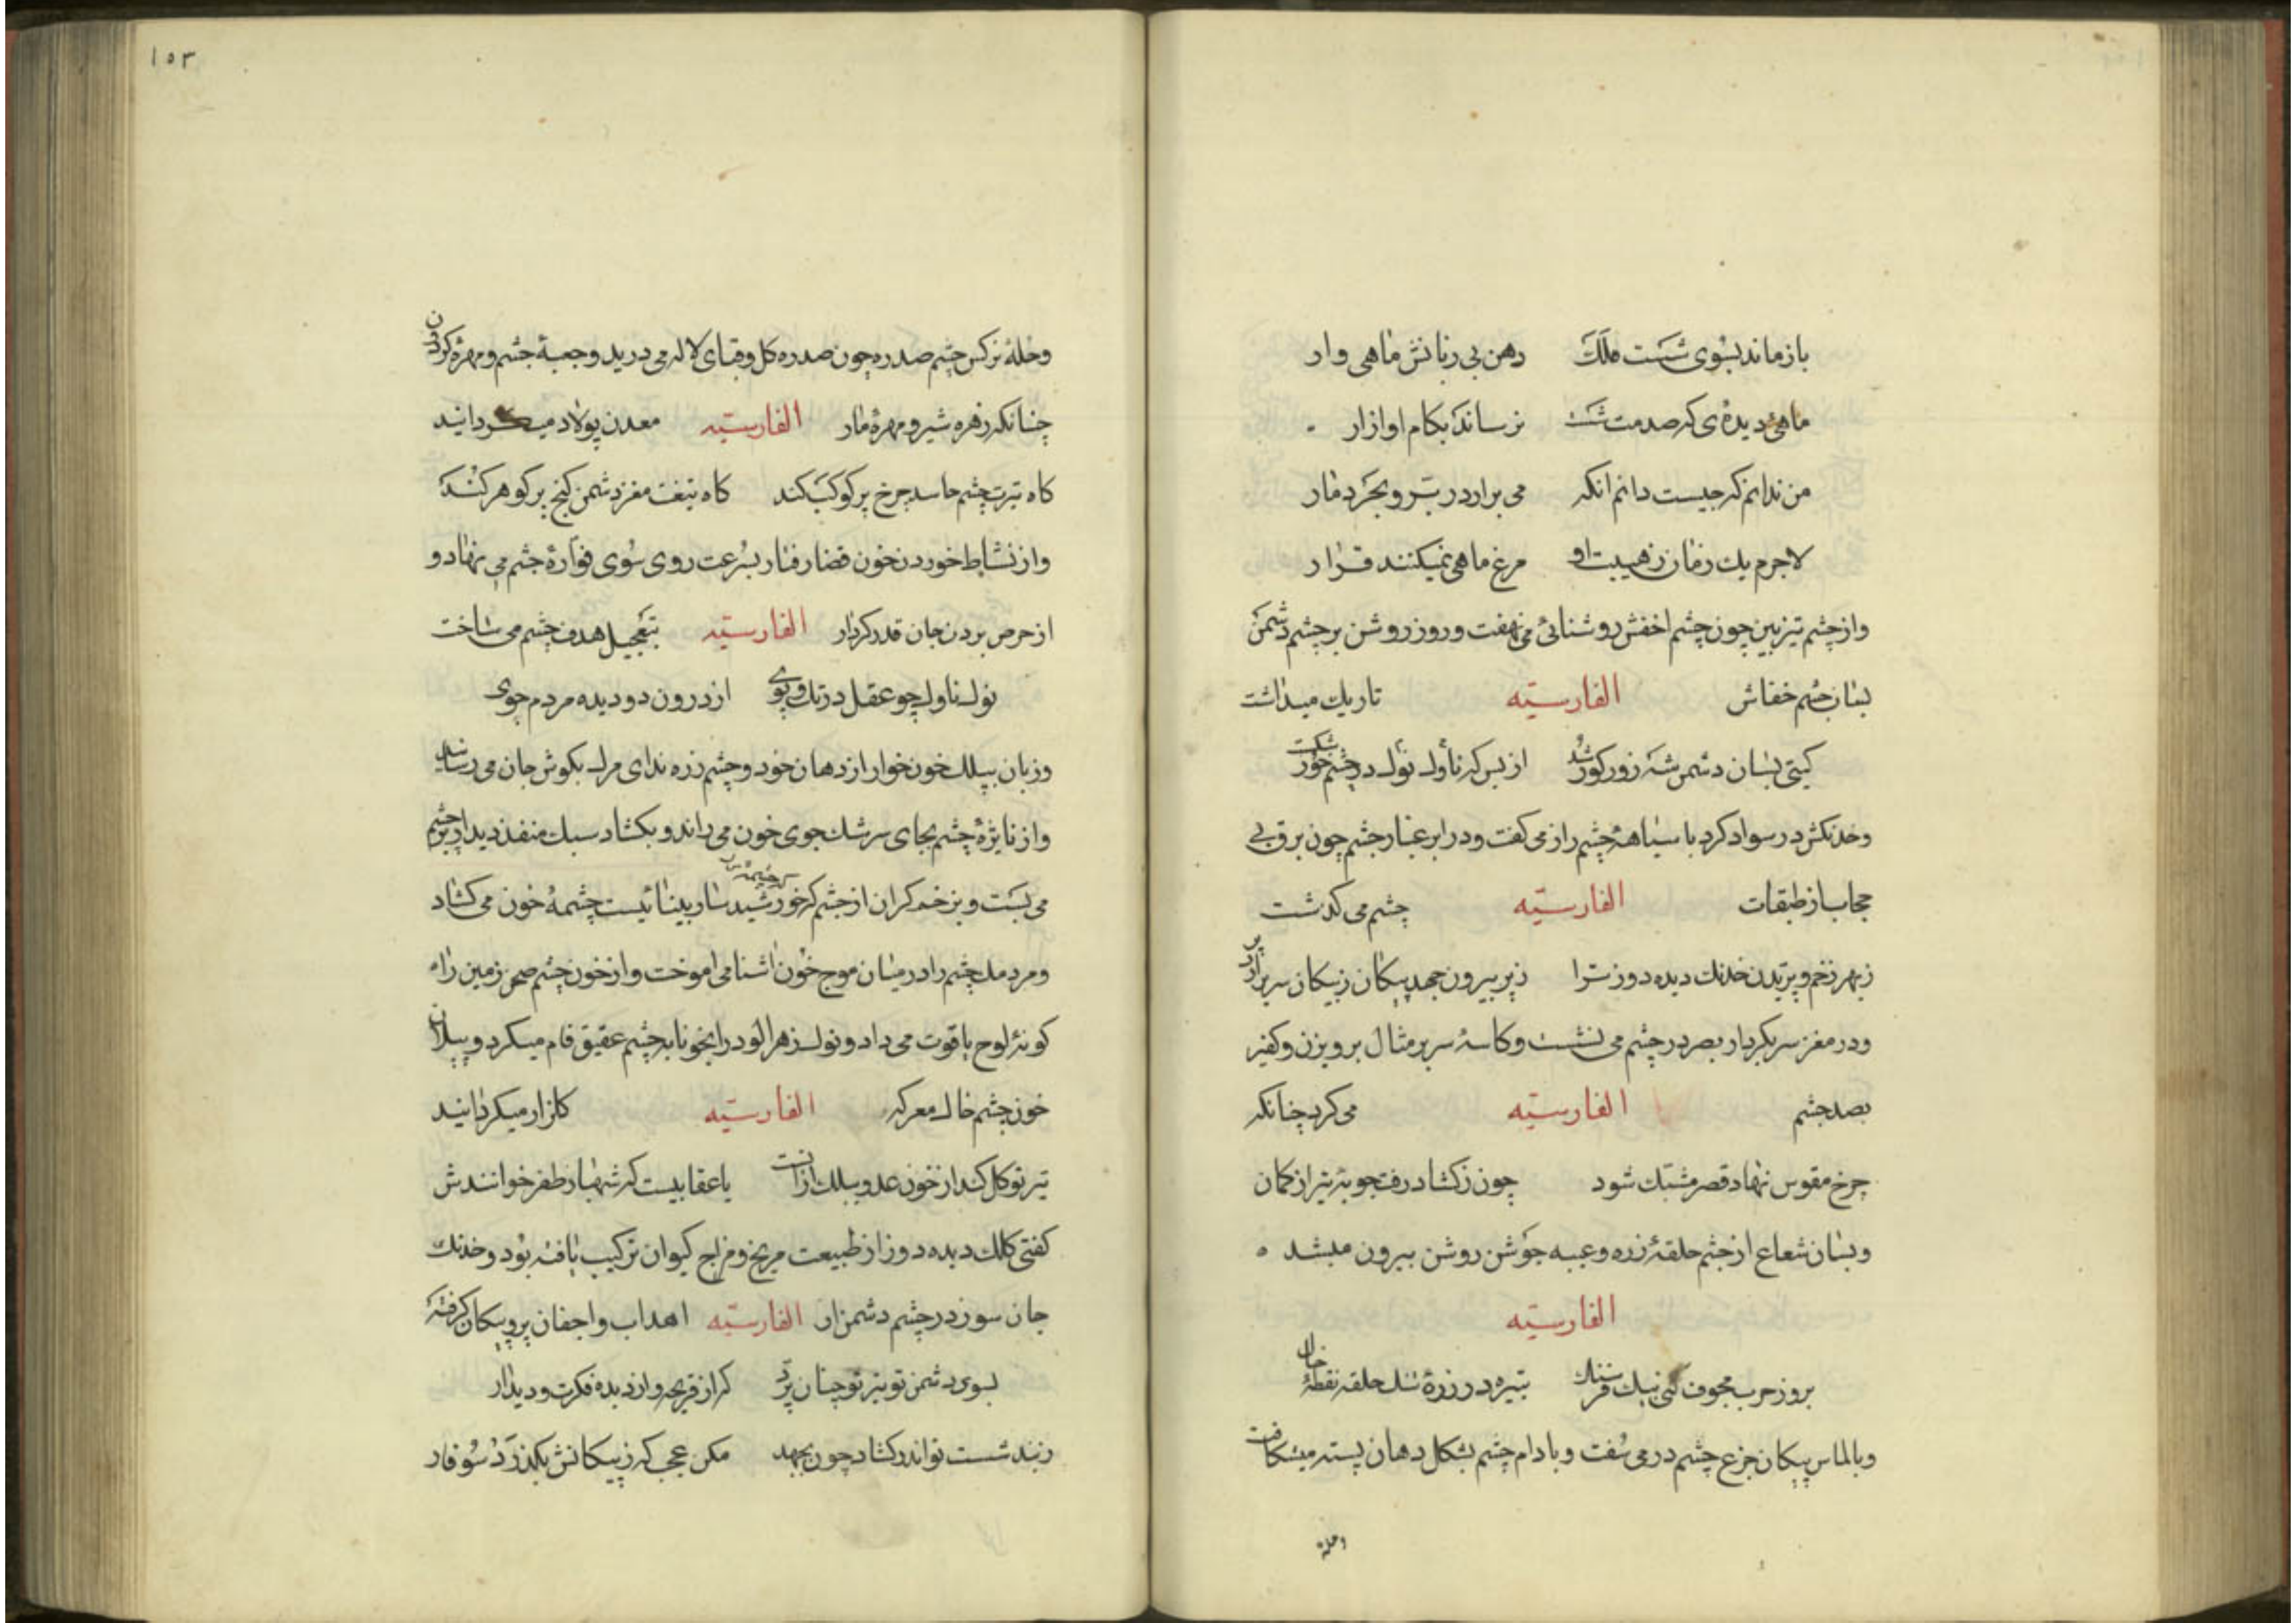 باز ماند بسوی شست ملک دهن بی زبانش ماهی وار
ماهئ دیدهٔ که صدمت شست نرساند بکام او ازار
من ندانم که چیست دانم انکه می برارد ز بر و بحر دمار
لاجرم یک زمان ز هیبت او مرغ ماهی نمیکنند قرار
واز چشم تیزبین چون چشم اخفش روشنائی می نهفت وروز روشن بر چشم دشمن
بسان چشم خفاش الفارسیّه تاریک میداشت
کیتی بسان دشمن شه زور کور شد از بس که ناوک تو در چشم خور شکست
وخدنکش در سواد کرد با سیاههٔ چشم راز می کفت ودر ابر غبار چشم چون برق بی
حجاب از طبقات الفارسیّه چشم می کذشت
ز بهر زخم و پریدن خدنک دیده دوز ترا ز پر بیرون جهد پیکان ز پیکان سر برارد پر
ودر مغز سر بکردار بصر در چشم می نشست وکاسهٔ سر بر مثال پرویزن وکفکیر
بصد چشم الفارسیّه می کرد چنانکه
چرخ مقوس نهاد قصر مشبک شود چون ز کشاد رفت چوبهٔ تیر از کمان
وبسان شعاع از چشم حلقهٔ زره وعیبه جوشن روشن بیرون میشد ه
الفارسیّه
بروز حرب مجوف کنی بیک فرسنک بتیره در زرهٔ تنک حلقه نقطهٔ خال
وبالماس پیکان جزع چشم در می سُفت وبادام چشم بشکل دهان پسته میشکافت
وحلهٔ
١٥٣
وحلهٔ نرکس چشم صدره چون صدره کل وقبای لاله می درید وجعبهٔ چشم ومهرهٔ کردن
چنانکه زهره شیر ومهرهٔ مار الفارسیّه معدن پولاد میکردانید
کاه تیرت چشم حاسد چرخ پر کوکب کند کاه تیغت مغز دشمن کنج پر کوهر کند
واز نشاط خوردن خون قضا رفتار بسرعت روی سوی فوارهٔ چشم می نهاد و
از حرص بردن جان قدر کردار الفارسیّه بتعجیل هدف چشم می ساخت
نوک ناوک چو عقل در تک وپوی از درون دو دیده مردم جوی
وزبان بیلک خون خوار از دهان خود وچشم زره ندای مرک بکوش جان می رساند
واز نایژهٔ چشم بجای سرشک جوی خون می راند وبکشاد سبک منفذ دیدار بر چشم
می بست وبزخم کران از چشم که خورشید سار بینائیست چشمهٔ خون می کشاد
ومردمک چشم را در میان موج خون اشنا می اموخت واز خون چشم صحن زمین را
کونهٔ لوح یاقوت می داد ونوک زهرالود را بخونابه چشم عقیق فام میکرد وبیلک از
خون چشم خاک معرکه الفارسیّه کلزار میکردانید
تیر تو کل کند از خون عدو بیلک از انت یا عقابیست که شهباز ظفر خوانندش
کفتی کلک دیده دوز از طبیعت مریخ ومزاج کیوان ترکیب یافته بود وخدنک
جان سوز در چشم دشمن از الفارسیّه اهداب واجفان پر وپیکان کرفته
بسوی دشمن تو تیر تو چنان پرّد که از قریحه واز دیده فکرت ودیدار
ز بند شست تو اندر کشاد چون بجهد مکن عجب که ز پیکانش بکذرد سوفار